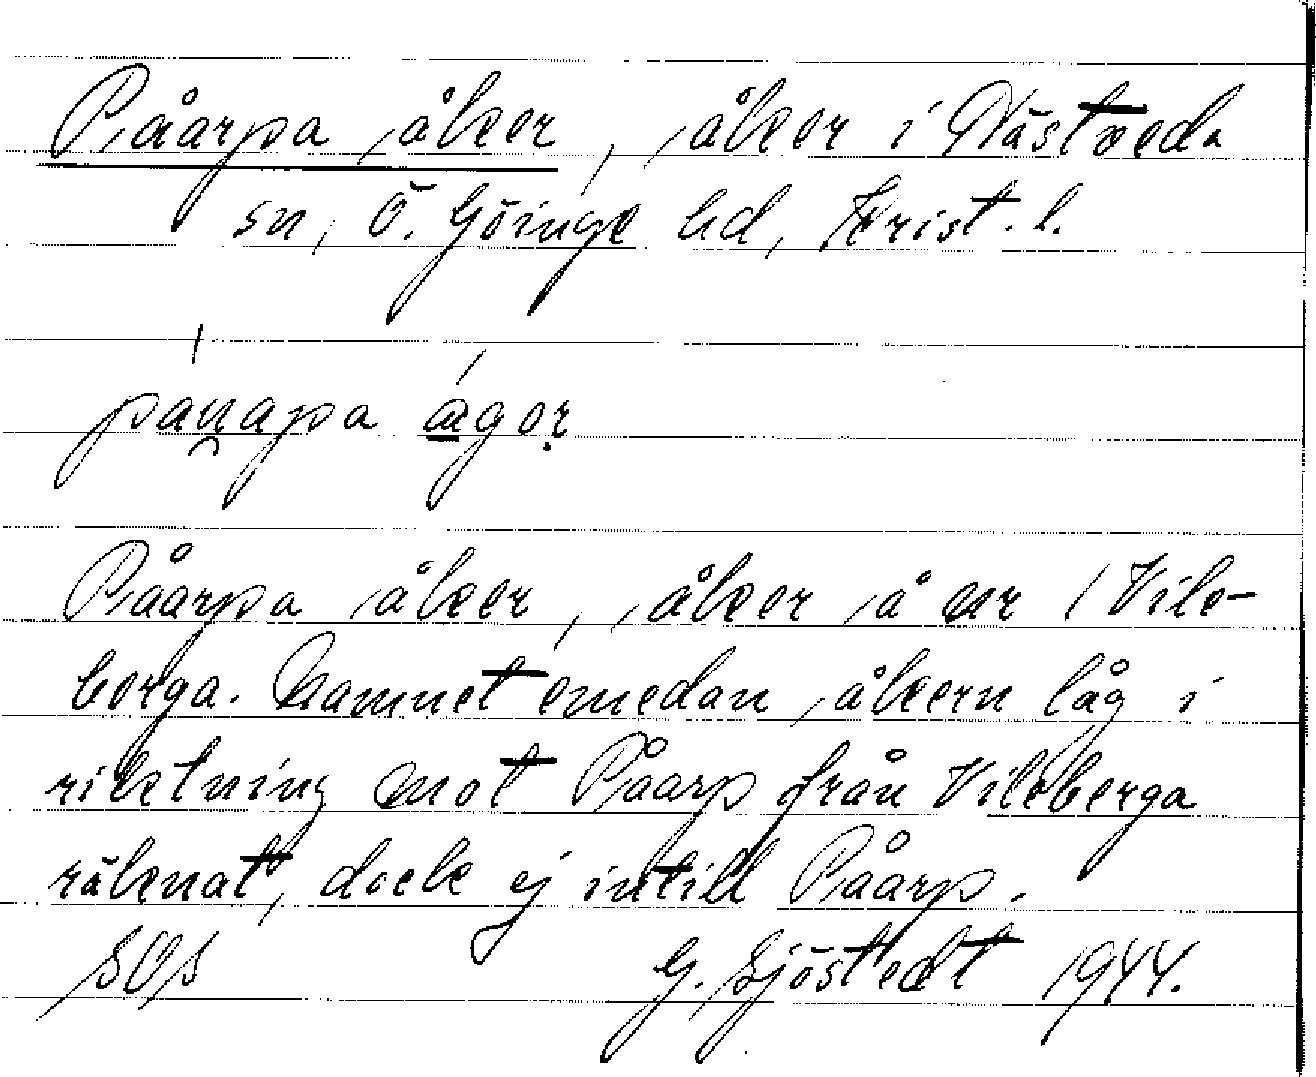 Påarpa åker, åker i Näsveda
sn, Ö. Göinge hd, Krist. l.
Påarpa åker, åker å nr 1 Vils-
berga. Namnet emedan åkern låg i
riktning mot Påarp från Vilsberga
räknat, dock ej intill Påarp.
SOS G. Sjöstedt 1944.